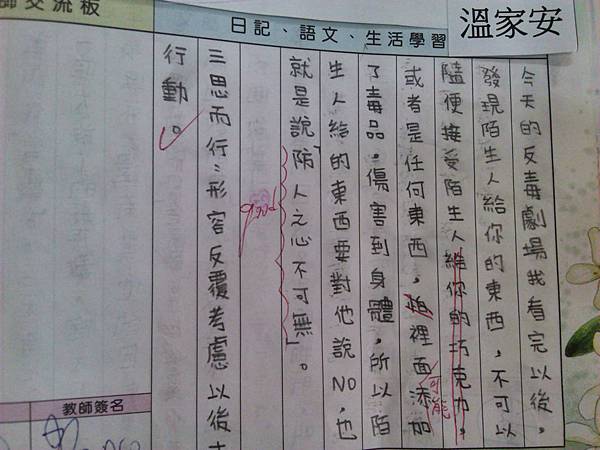 溫家安
日記、語文、生活學習
師交流板
今天的反毒劇場我看完以後,
發現陌生人給你的東西,不可以
隨便接受陌生人給你的巧克力,
或者是任何東西,怕裡面添加
可能
了毒品,傷害到身體,所以陌
生人給的東西要對他說NO,也
就是說「防人之心不可無」。
good
三思而行:形容反覆考慮以後才
行動。
教師簽名